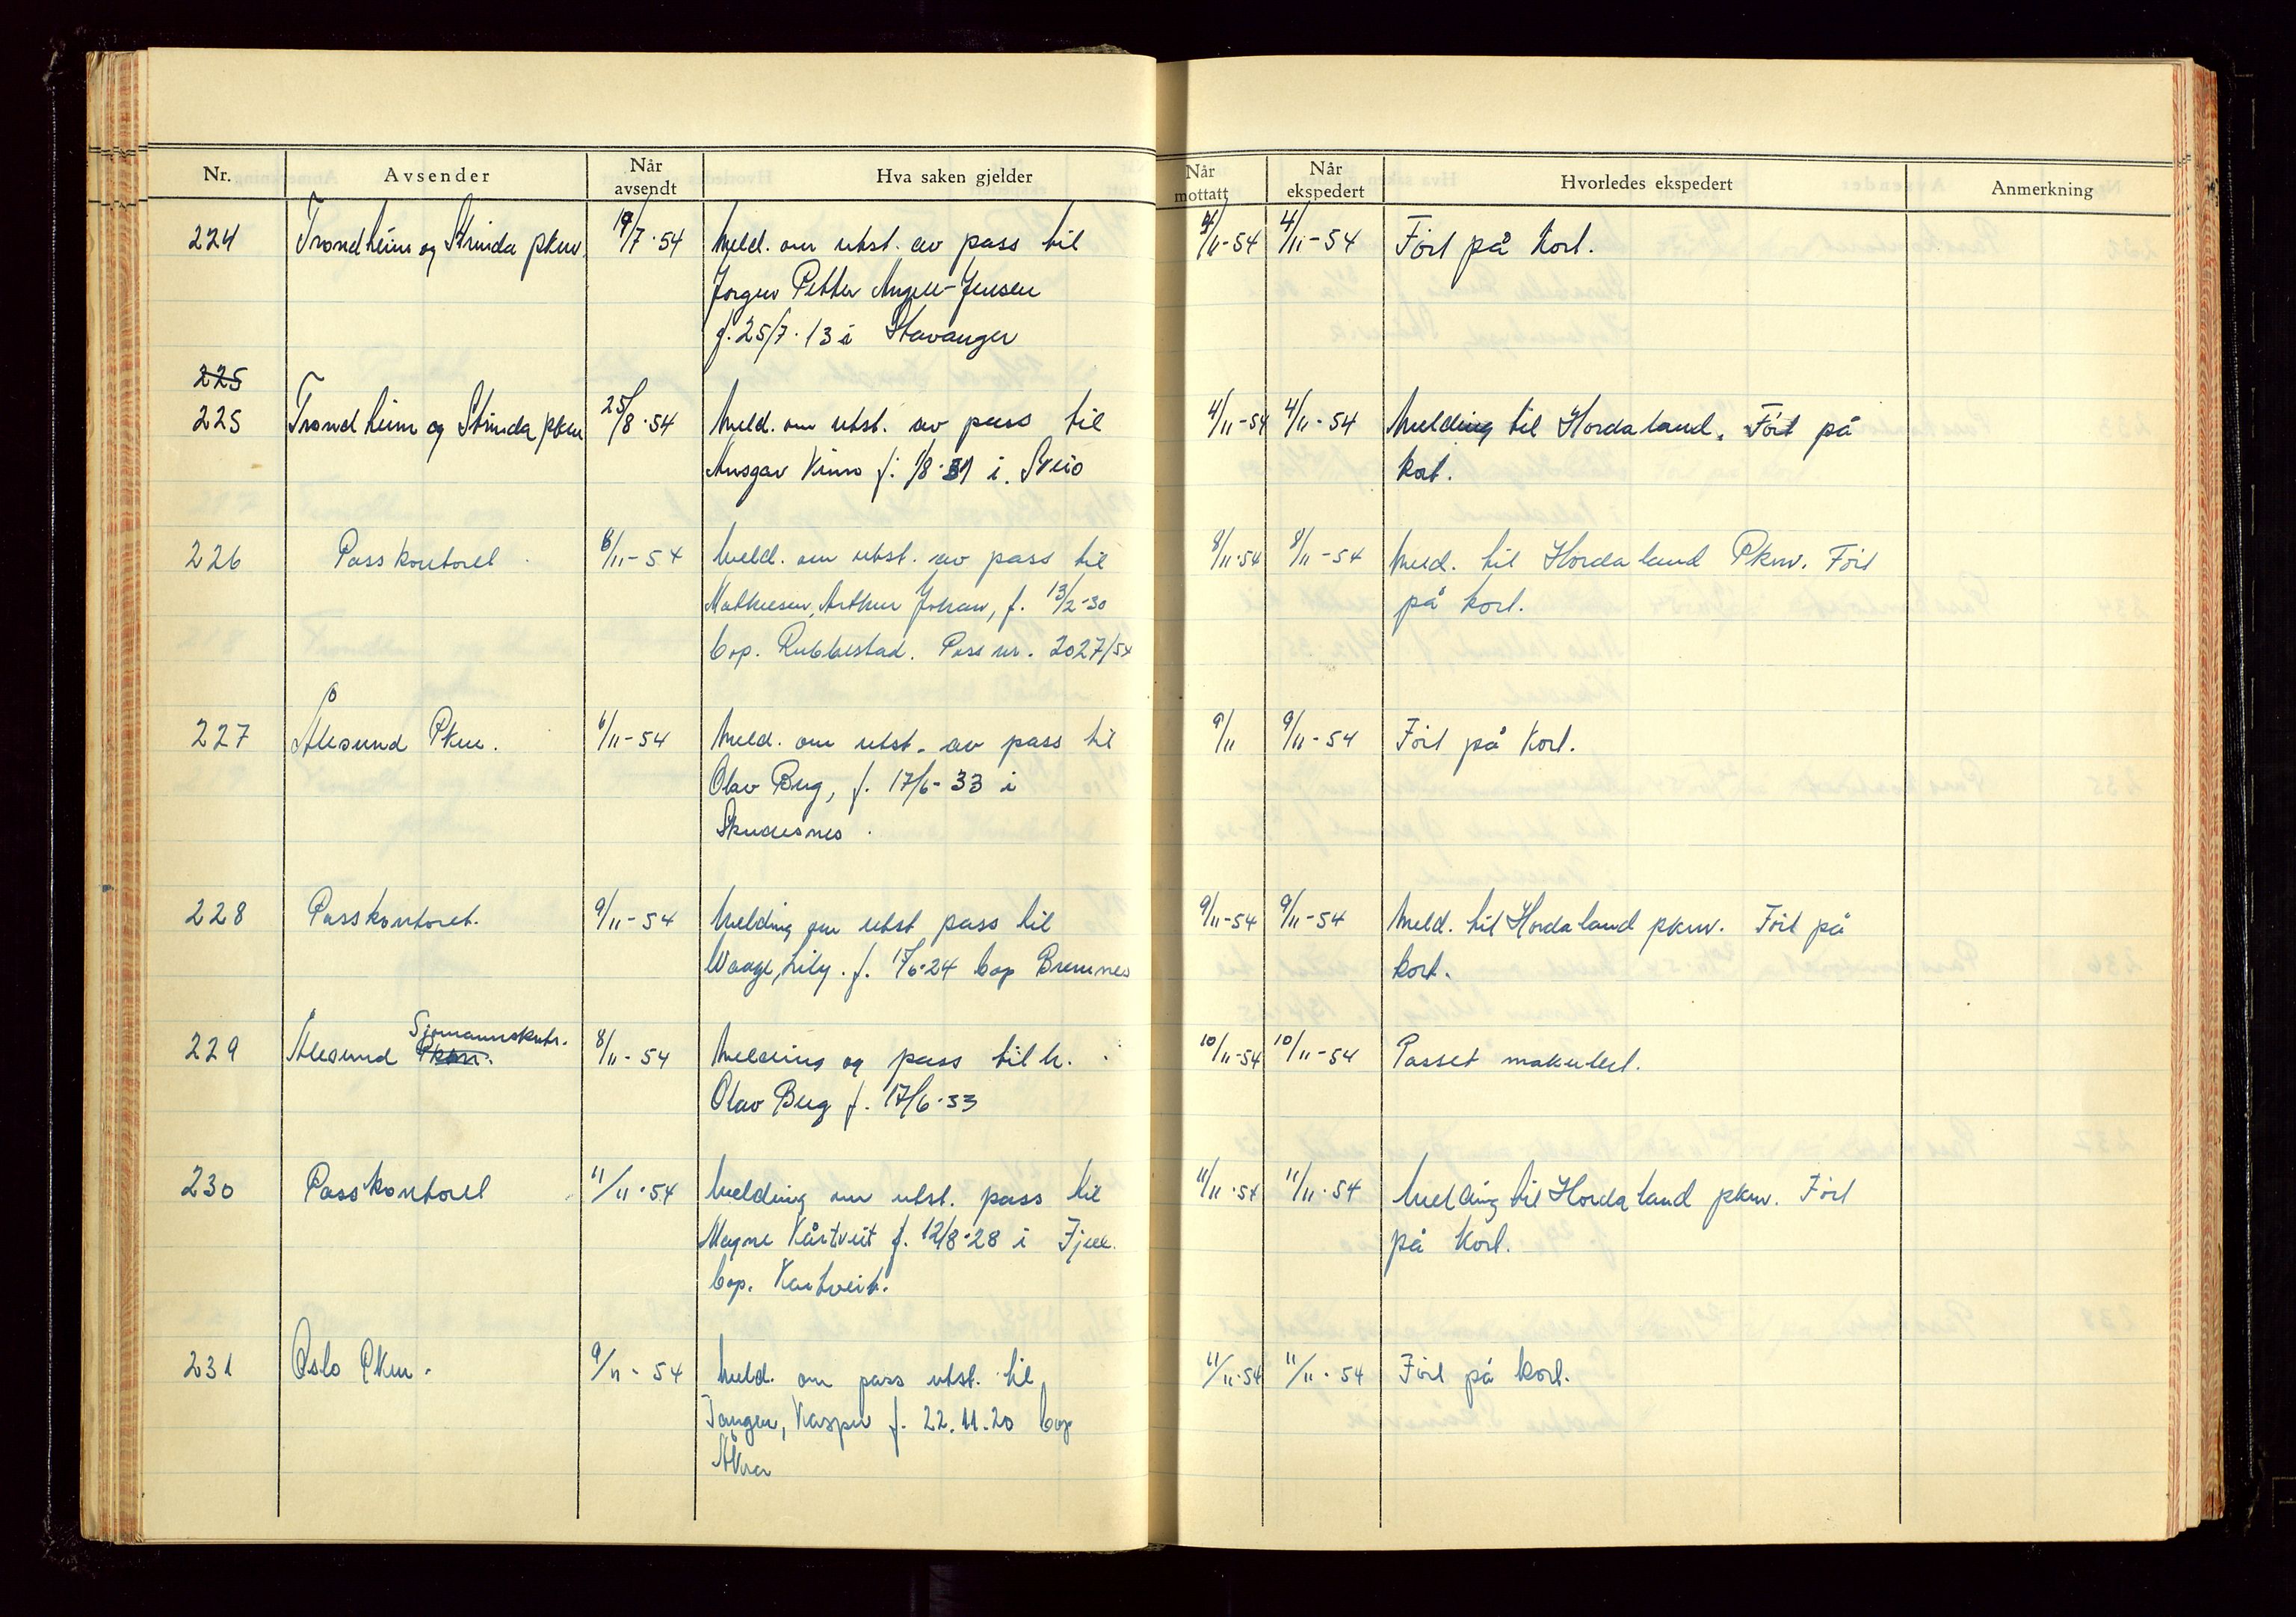 Nr. Avsender Når avsendt Hva saken gjelder Når mottatt Når ekspedert Hvorledes ekspedert Anmerkning
224 Trondheim og Strinda pkm. 19/7-54 Meld. om utst. av pass til 4/11-54 4/11-54 Ført på kort.
Jørgen Petter Angell-Jensen
f. 25/7.13 i Stavanger
225
225 Trondheim og Strinda pkm 25/8-54 Meld. om utst. av pass til 4/11-54 4/11-54 Melding til Hordaland. Ført på
Ansgar f. i Sveio kort.
226 Passkontoret 6/11-54 Meld. om utst. av pass til 8/11-54 8/11-54 Meld. til Hordaland Pkm. Ført
Mathiesen, Arthur Johan, f. 13/2-30 på kort.
bop. Rubbestad. Pass nr. 2027/54
227 Ålesund Pkm. 6/11-54 Meld. om utst. av pass til 9/11 9/11-54 Ført på kort.
Olav Berg, f. 17/6-33 i
Skudesnes.
228 Passkontoret. 9/11-54 Melding om utst pass til 9/11-54 9/11-54 Meld. til Hordaland pkm. Ført på
Waage, Lily. f. 17/6-24 bop Bremnes kort.
229 Ålesund Pkm. Sjømannsktr. 8/11-54 Melding og pass tilh. 10/11-54 10/11-54 Passet makulert.
Olav Berg f. 17/6-33
230 Passkontoret 11/11-54 Melding om utst. pass til 11/11-54 11/11-54 Melding til Hordaland pkm. Ført
Magne Kårtveit f. 12/8-28 i Fjell. på kort.
bop. Kårtveit.
231 Oslo Pkm. 9/11-54 Meld. om pass utst. til 11/11-54 11/11-54 Ført på kort.
Tangen, Kasper f. 22.11.20 bop
Åkra